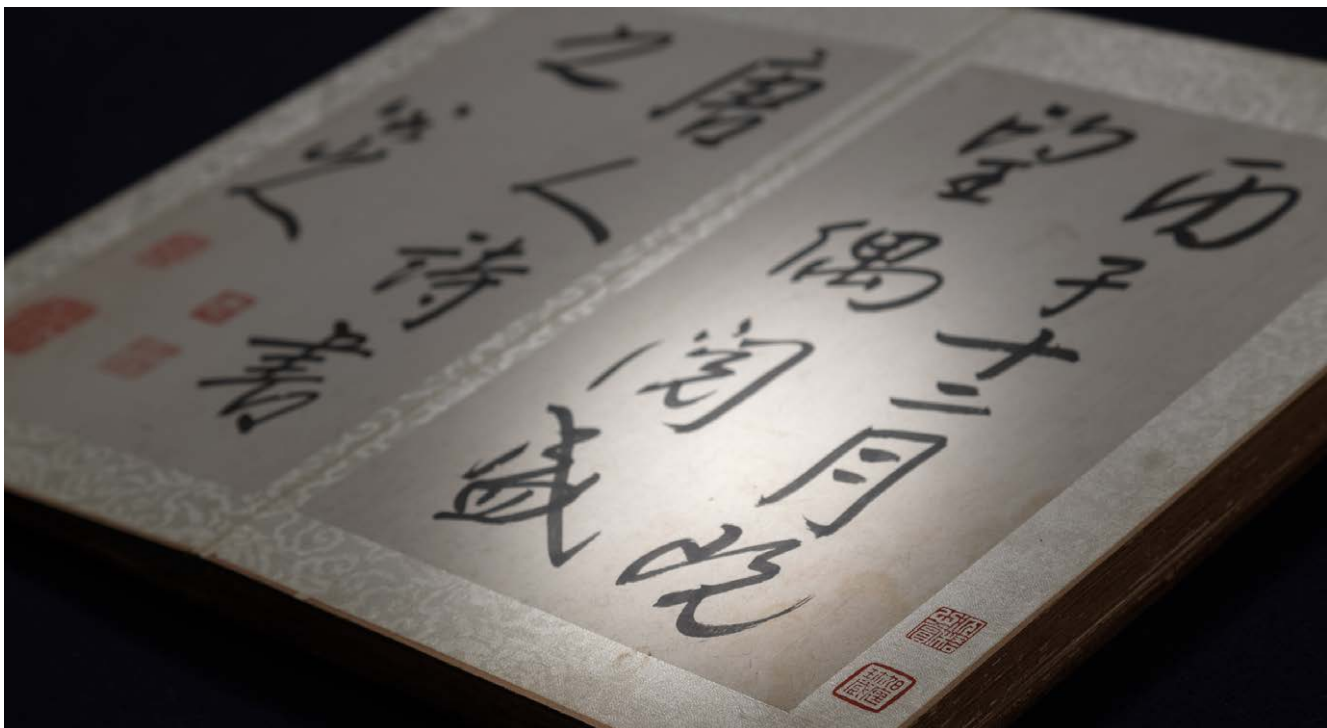 丙子十二月既
望偶閱盛
唐人詩書
之人